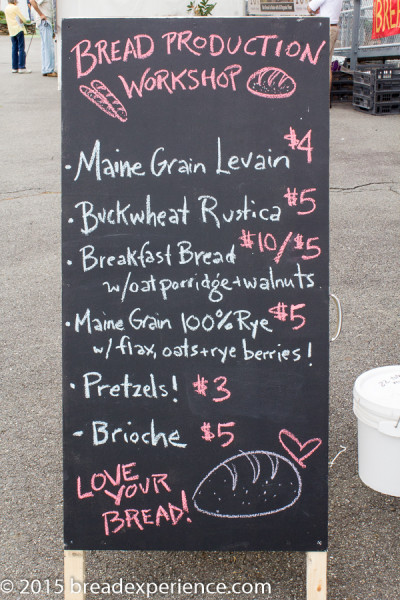 BREAD PRODUCTION
WORKSHOP
· Maine Grain Levain $4
· Buckwheat Rustica $5
· Breakfast Bread $10/$5
w/oat porridge + walnuts
· Maine Grain 100% Rye $5
w/ flax, oats + rye berries!
· Pretzels! $3
- Brioche $5
LOVE
YOUR
BREAD!
BRE
© 2015 breadexperience.com